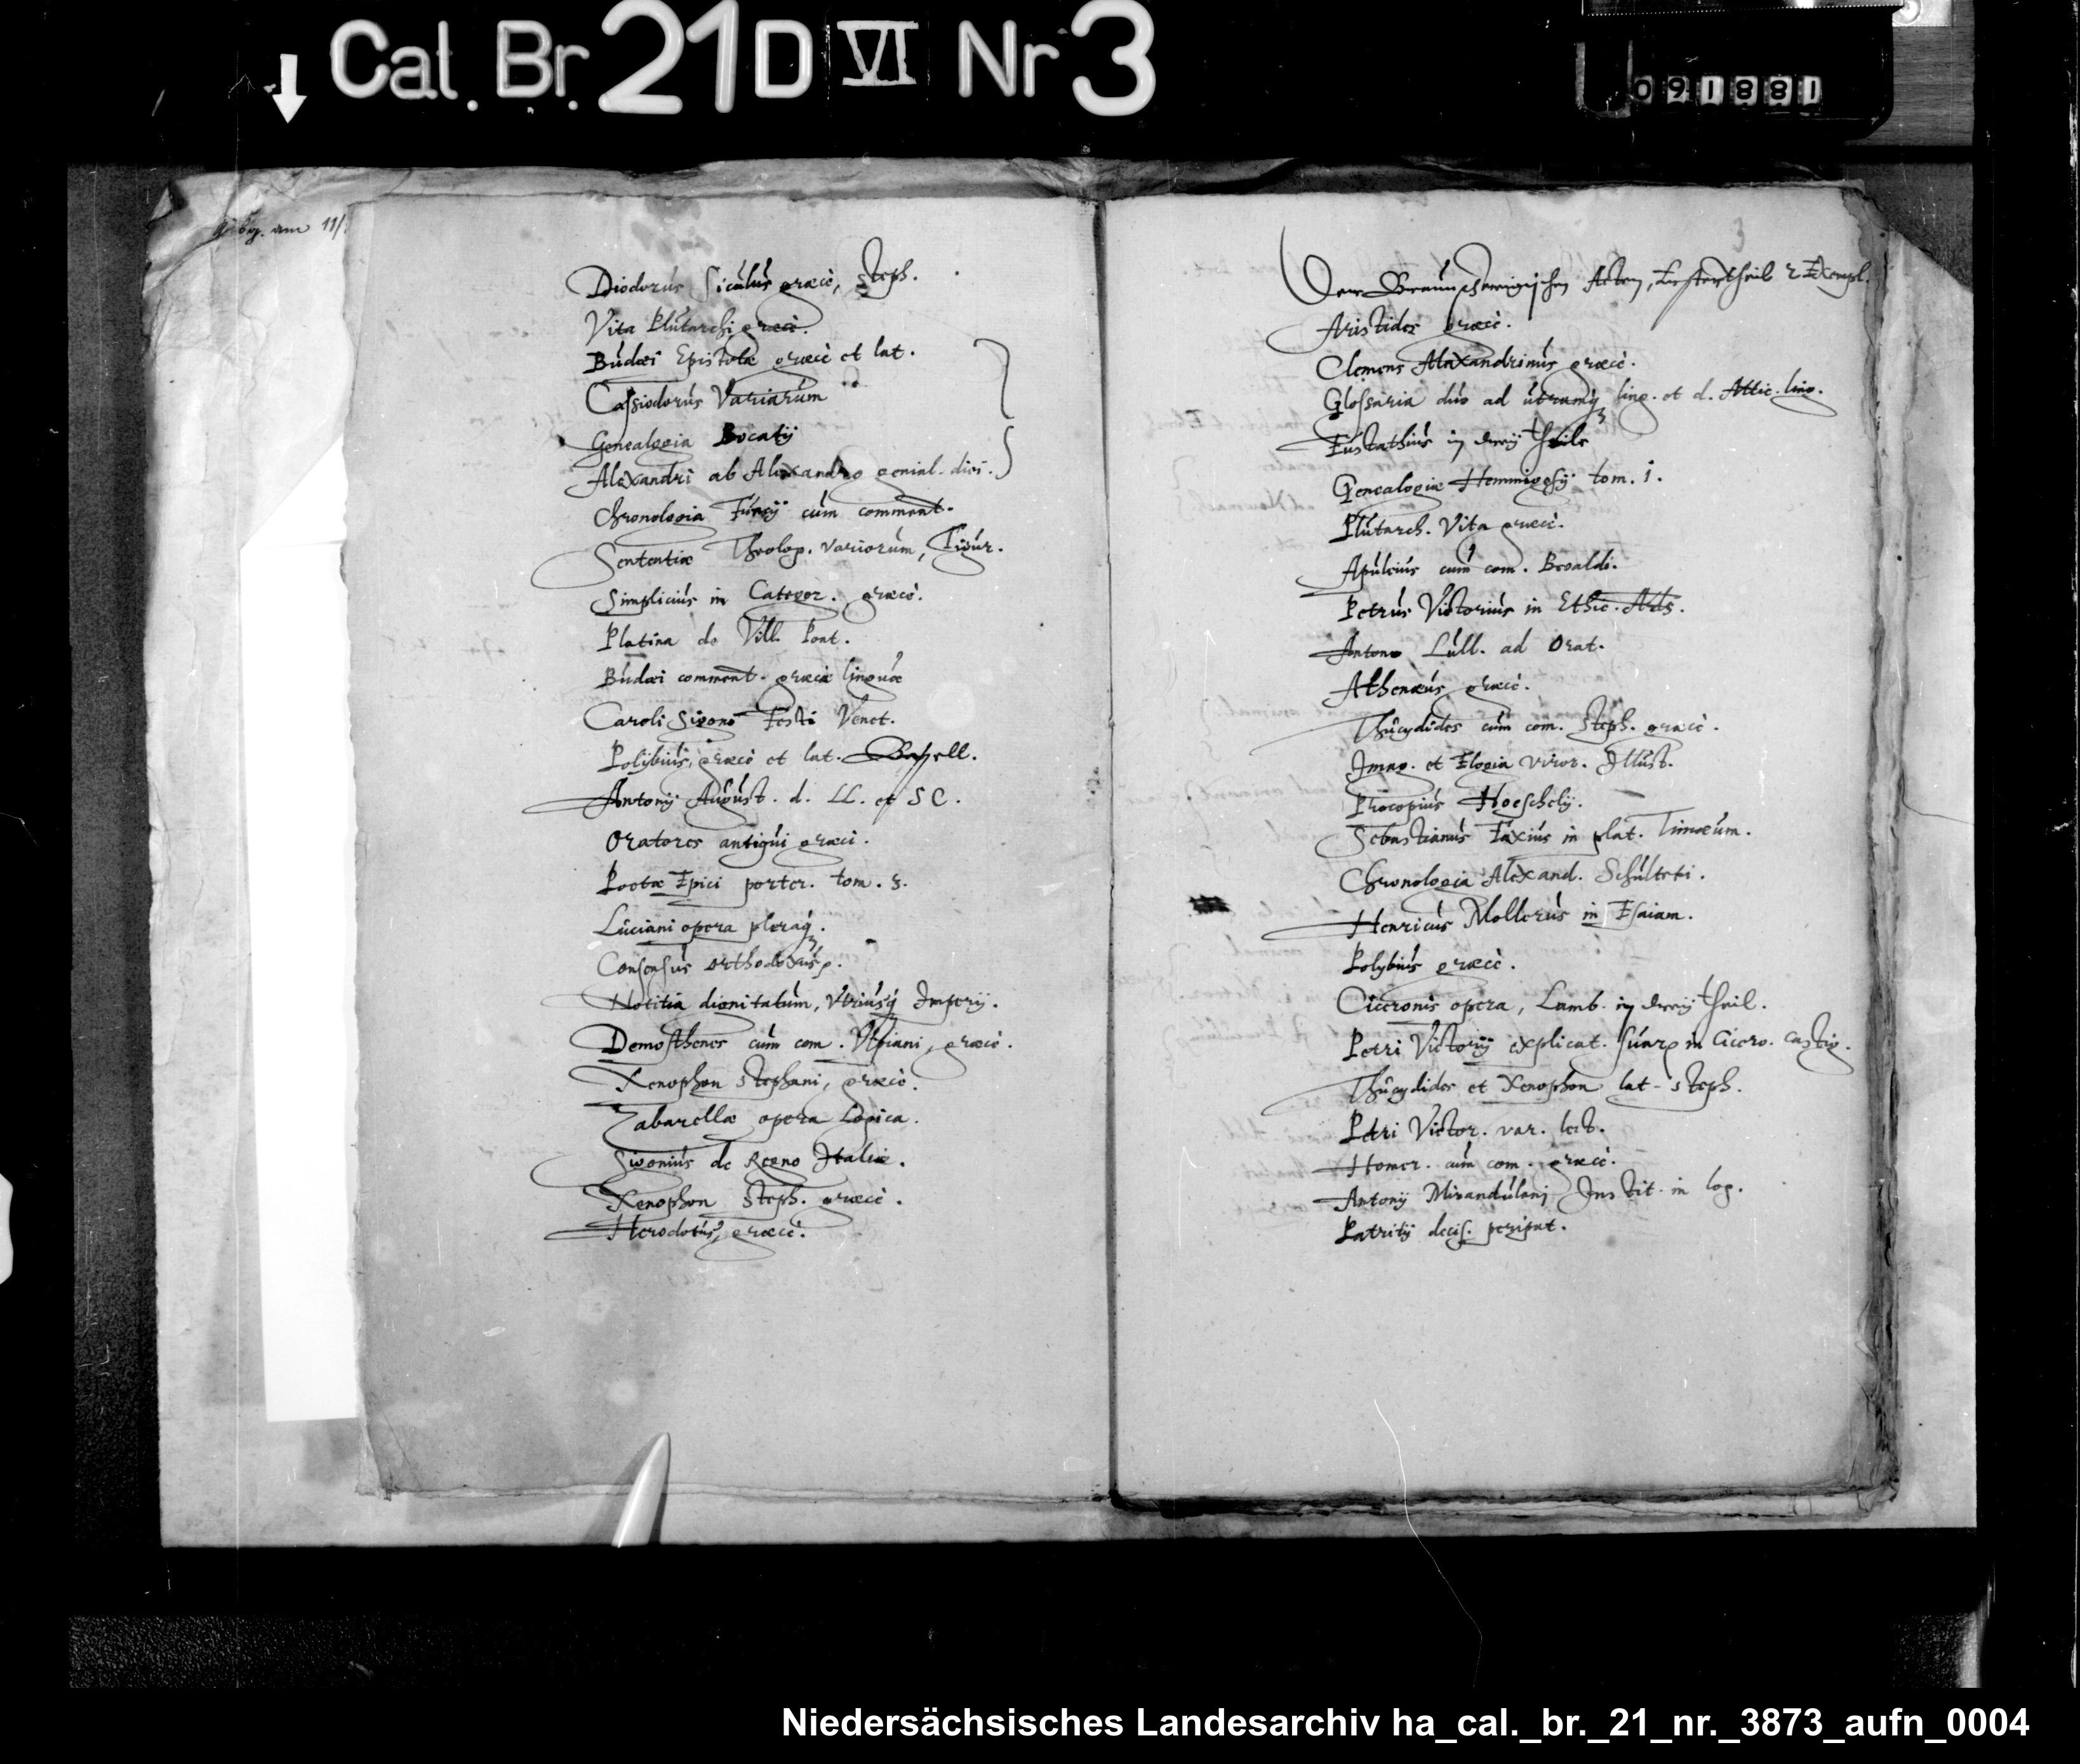 Cal. Br. 21 D VI Nr 3
091881
am 11/
Diodorus Siculus græcè, Steph.
Vita Plutarchi græcè.
Budæi Epistolæ græcè et lat.
Cassiodorus Variarum
Genealogia Bocatij
Alexandri ab Alexandro genial. dieī.
Chronologia Funcij cum comment.
Sententiæ Theolog. variorum, Tigur.
Simplicius in Categor. græcè.
Platina de Vill. Pont.
Budæi comment. græcæ linguæ
Caroli Sigonij Fasti Venet.
Polybius, græcè et lat. Basell.
Antonij August. d. LL. et S C.
Oratores antiqui græci.
Poetæ Epici porter. tom. 3.
Luciani opera pleraq3.
Consensus orthodoxus.
Notitia dignitatum, Vtriusq Imperij.
Demosthenes cum com. Vlpiani, græcè.
Xenophon Stephani, græcè.
Zabarellæ opera Logica.
Sigonius de Regno Italiæ.
Xenophon Steph. græcè.
Herodotus, græcè.
3
Der Braunschweigischen Acten, Erstertheil 2 Exempl.
Aristides græcè.
Clemens Alexandrinus græcè.
Glossaria duo ad utramq3 ling. et d. Attic. ling.
Eustathius in dreij theile
Genealogiæ Hemmigesij tom. 1.
Plutarch. Vita græcè.
Apuleius cum com. Beoaldi.
Petrus Victorius in Ethic. Arts.
Antono Lull. ad Orat.
Athenæus græcè.
Thucydides cum com. Steph. græcè.
Imag. et Elogia viror. Illust.
Procopius Hoeschelij.
Sebastianus Foxius in plat. Timæum.
Chronologia Alexand. Schulteti.
Henricus Mollerus in Esaiam.
Polybius græcè.
Ciceronis opera, Lamb. in dreij theil.
Petri Victorij explicat. suar in Cicero. castig.
Thucydides et Xenophon lat. Steph.
Petri Victor. var. lect.
Homer. cum com. græcè.
Antonij Mirandulanj Instit. in log.
Patritij decis. peripat.
Niedersächsisches Landesarchiv ha_cal._br._21_nr._3873_aufn_0004